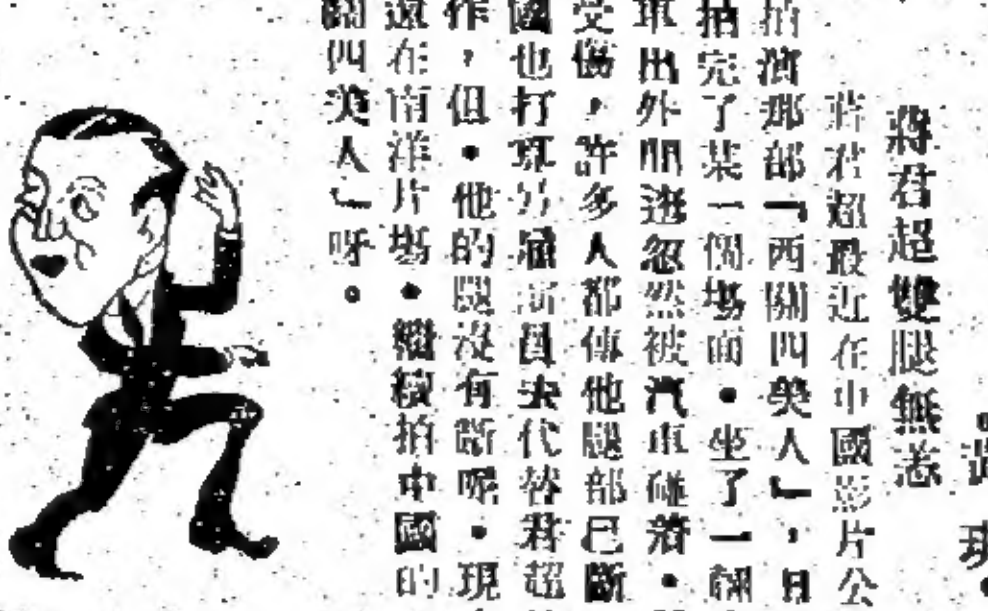 蔣君超雙腿無恙
蔣君超最近在中國影片公
拍演那部「西關四美人」，日
拍完了某一個場面・坐了一輛
車出外閒逛忽然被汽車碰着・
受傷，許多人都傳他腿部已斷
國也打算另員代替君超
作，但・他的腿沒有斷呢・現
還在南洋片場・繼續拍中國的
關四美人」呀。